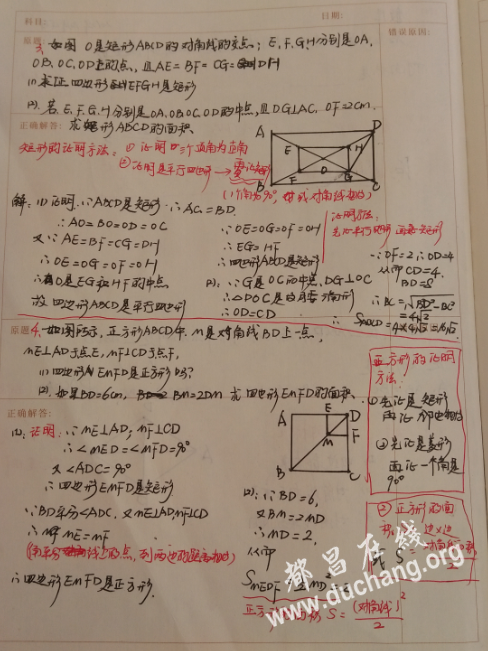 科目 日期:
原题: 3. 如图 O是矩形ABCD的对角线的交点; E,F,G,H分别是OA, 错误原因:
OB, OC, OD上的点, 且AE=BF=CG=DH
(1) 求证四边形EFGH是矩形
(2). 若E,F,G,H分别是OA,OB,OC,OD的中点, 且DG⊥AC. OF=2cm.
正确解答: 求矩形ABCD的面积.
矩形的证明方法: ① 证明四个三个直角为直角
② 证明是平行四边形
A D
E H
O
F G
B C
解: (1) 证明: ∵ABCD是矩形 ∴AC=BD.
∴AO=BO=OD=OC
又∵AE=BF=CG=DH
∴OE=OG=OF=OH
∴O是EG和HF的中点
故四边形ABCD是平行四边形
∵OE=OG=OF=OH
∴EG=HF
∴四边形ABCD是矩形
(2). ∵G是OC的中点, DG⊥OC
∴OD=CD
证明方法:
∵OF=2 ∴OD=4
从而CD=4.
BD=8
∴BC=
=4√3
原题4. 如图所示, 正方形ABCD中, M是对角线BD上一点,
ME⊥AD于点E, MF⊥CD于点F,
(1) 四边形EMFD是正方形吗?
(2). 如果BD=6cm, BM=2DM 求四边形EMFD的面积.
正确解答:
A E D
M F
B C
(1). 证明: ∵ME⊥AD, MF⊥CD
∴∠MED=∠MFD=90°
又∠ADC=90°
∴四边形EMFD是矩形
∵BD平分∠ADC, 又ME⊥AD MF⊥CD
∴ME=MF
∴四边形EMFD是正方形.
(2). ∵BD=6,
又BM=2MD
∴MD=2,
从而
正方形的证明
方法:
①先证是矩形
再证
②先证是菱形
再证一个角是
90°
② 正方形的面
S =
正方形的面积 S = (对角线)²
2
都昌在线
www.duchang.org